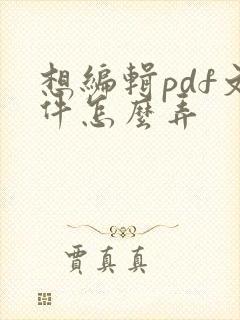 想編輯pdf文
件怎麼弄
賈真真